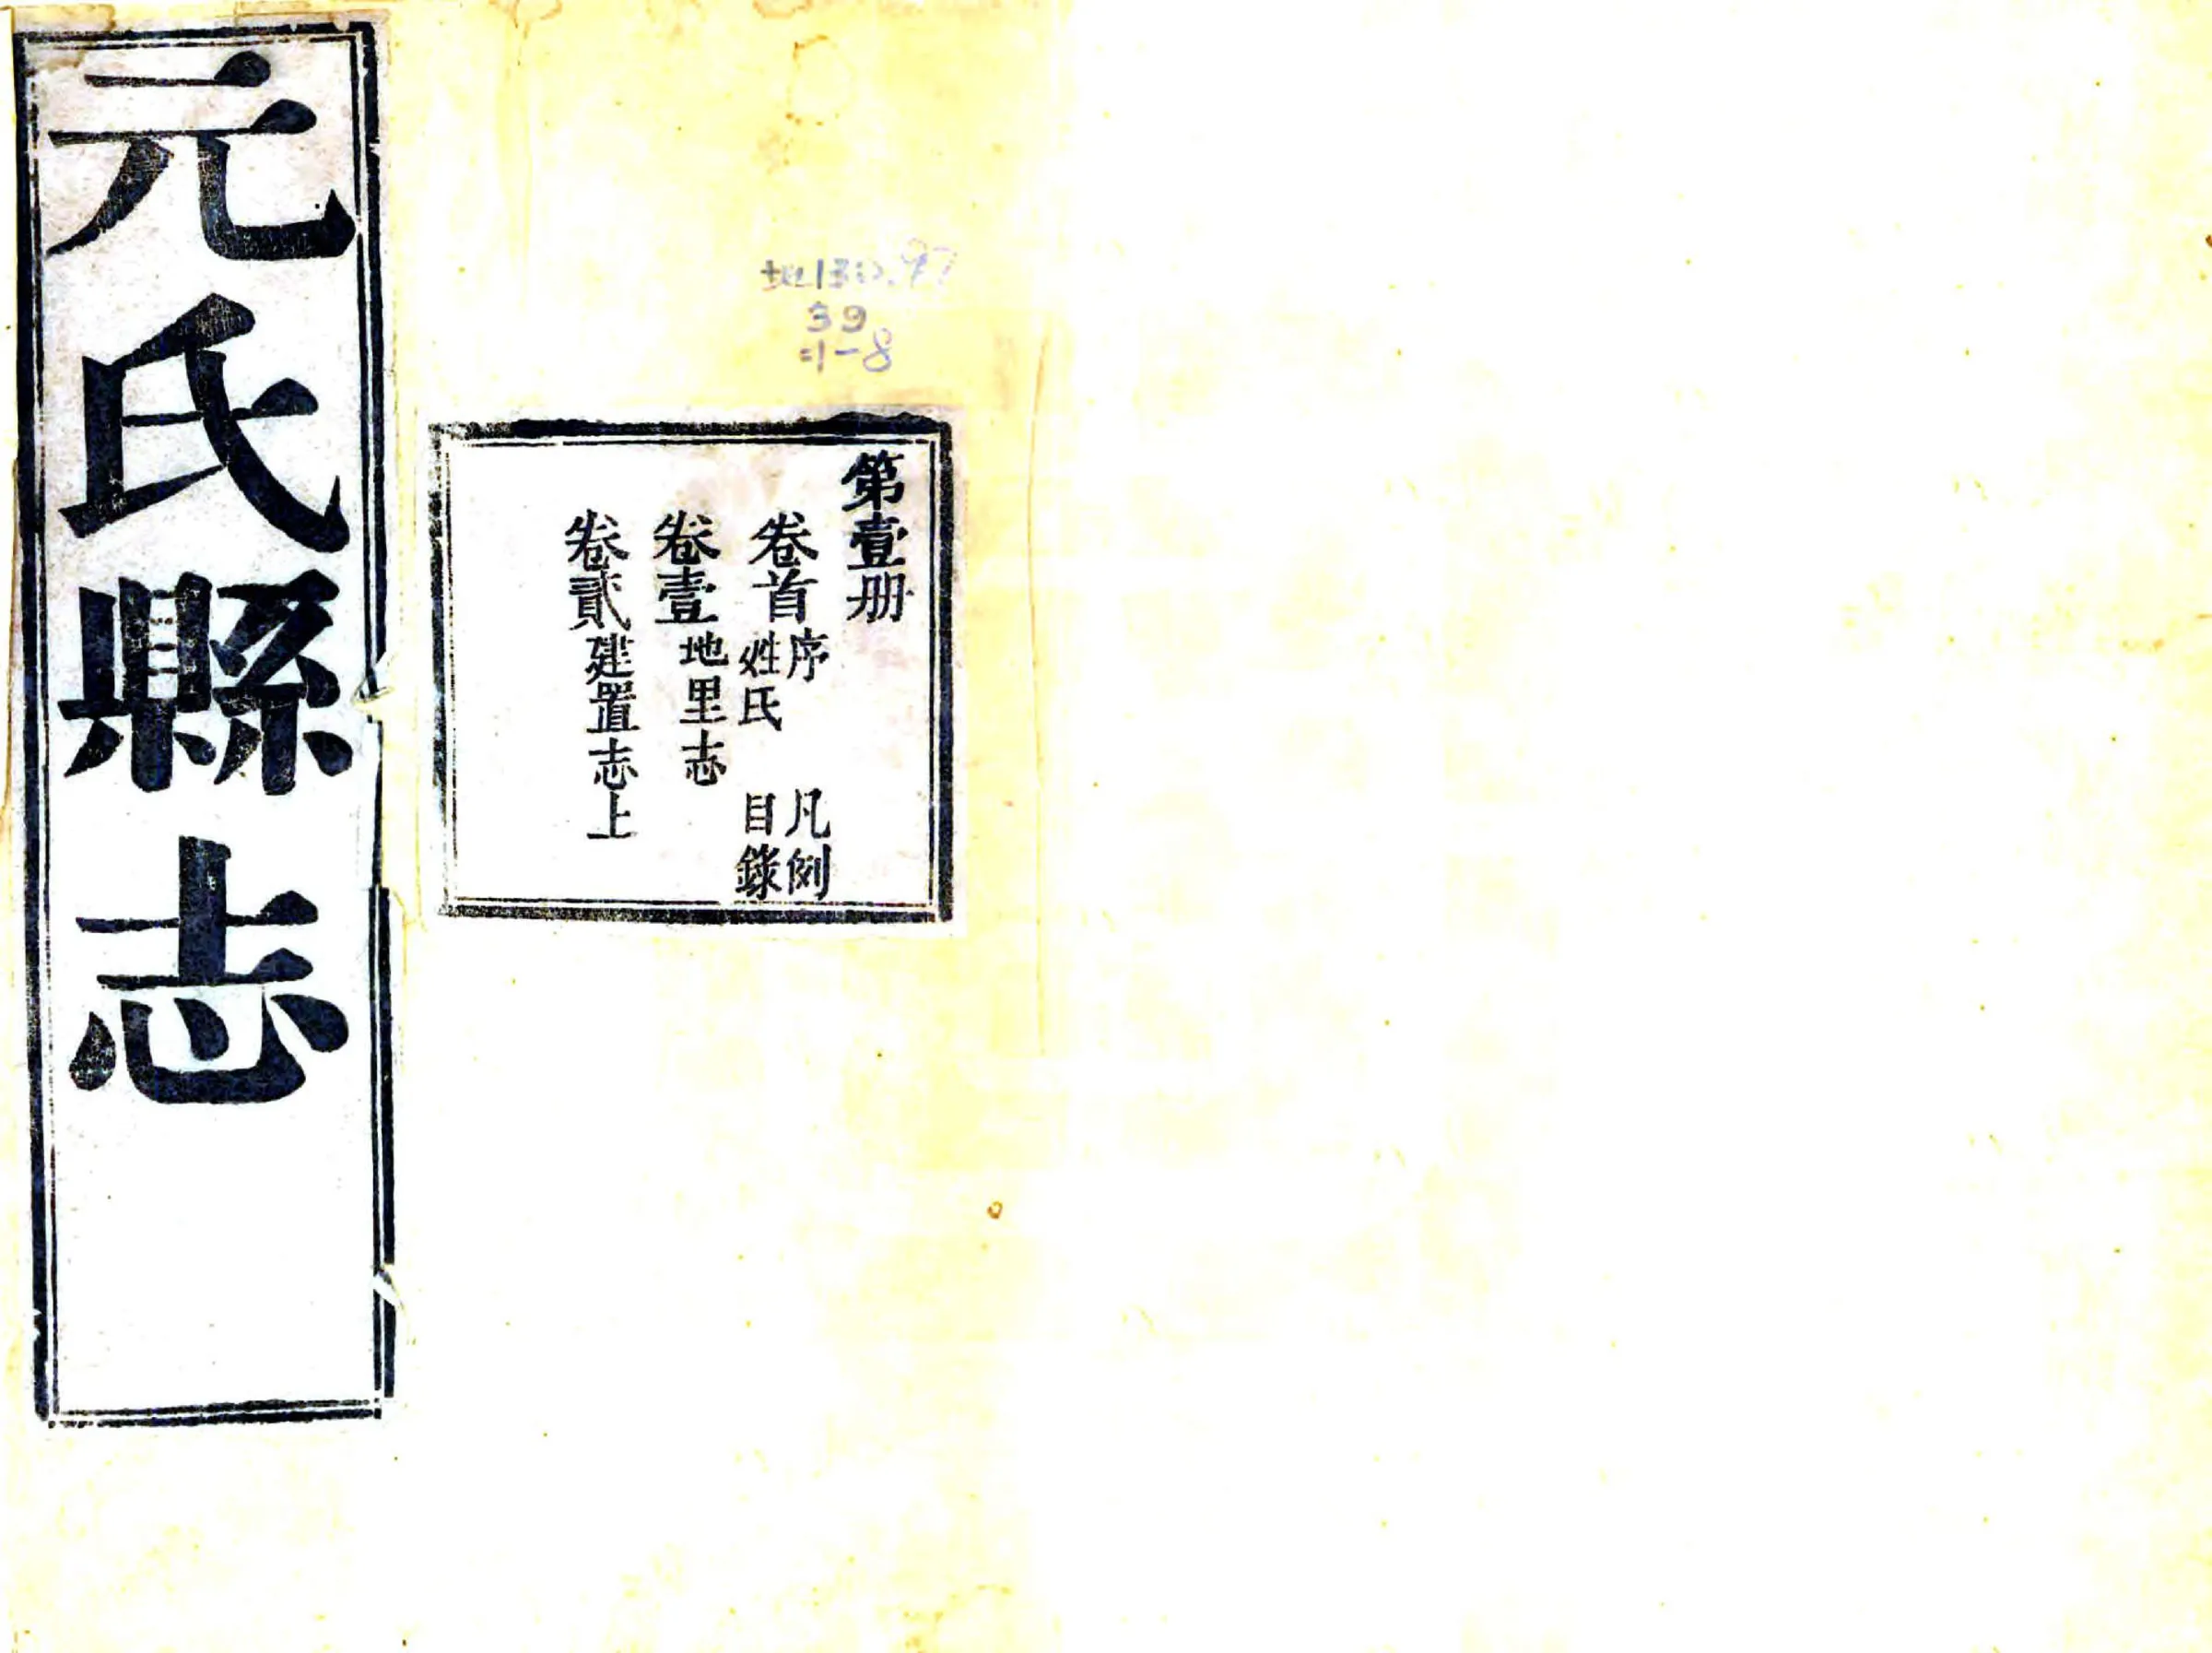 元氏縣志
第壹册
卷首 序 凡例
姓氏 目錄
卷壹 地里志
卷貳 建置志上
39
1-8